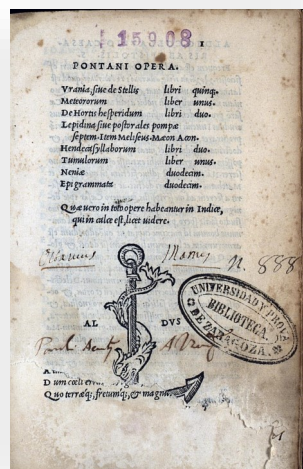 15908
1
PONTANI OPERA.
Vrania, siue de Stellis libri quinq;.
Meteororum liber unus.
De Hortis hesperidum libri duo.
Lepidina siue postorales pompæ
septem. Item Meliseus Mæon Acon.
Hendecasyllaborum libri duo.
Tumulorum liber unus.
Neniæ duodecim.
Epigrammata duodecim.
Quæ uero in toto opere habeantur in Indice,
qui in calce est, licet uidere.
n. 888
AL DVS
UNIVERSIDAD Y PROVA
BIBLIOTECA
DE ZARAGOZA
Dum cœli
Quo terræq;, fretumq;, & magni